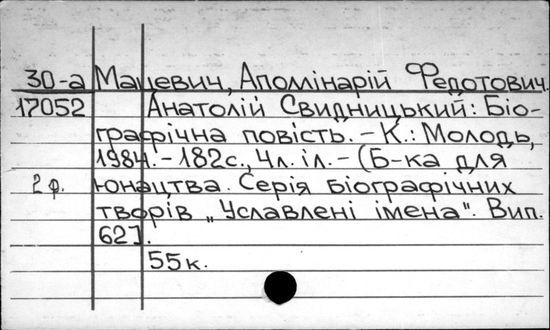 30-а Мацевич, Аполлінарій Федотович.
17052 Анатолій Свидницький: Біо-
графічна повість. – К.: Молодь,
1984. – 182с., 4л. іл. – (Б-ка для
2 ф. юнацтва. Серія біографічних
творів „Уславлені імена". Вип.
62].
55к.